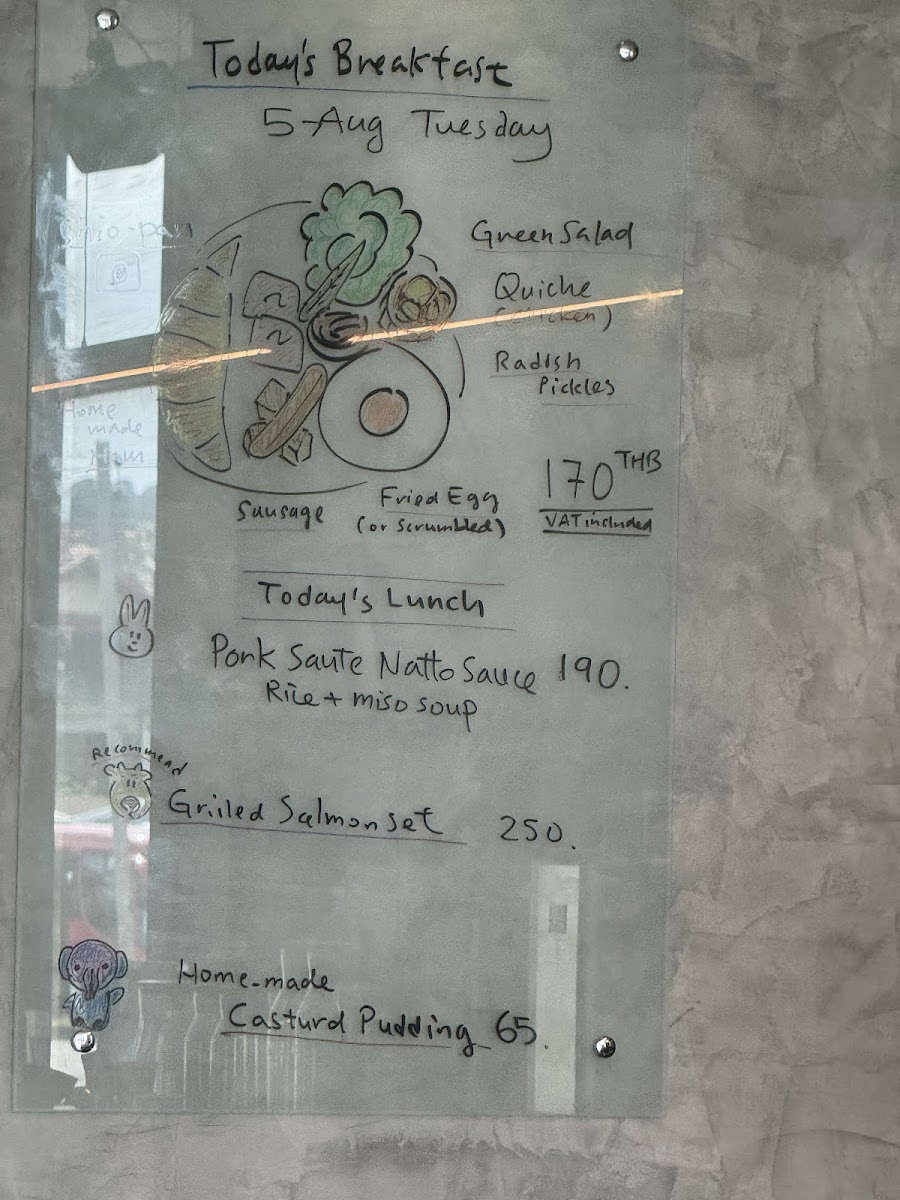 Today's Breakfast
5-Aug Tuesday
Green Salad
Quiche
(chicken)
Radish
Pickles
170 THB
VAT included
Sausage
Fried Egg
(or Scrumbled)
Today's Lunch
Pork Saute Natto Sauce 190.
Rice + miso soup
Recommend
Grilled Salmon set 250.
Home-made
Casturd Pudding 65.
Home
made